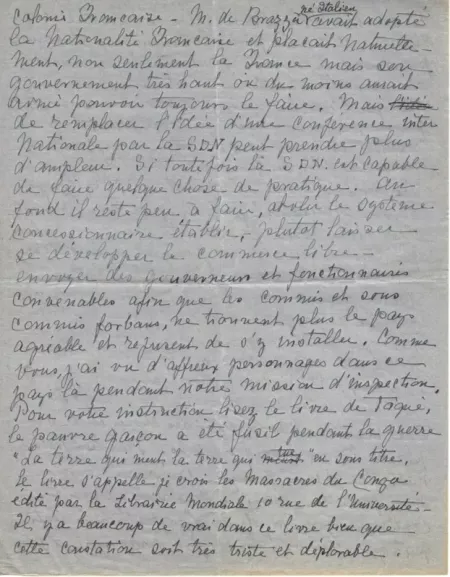 colonie Francaise - M. de Brazza né Italien avait adopté
la Nationalité Francaise et placait naturelle-
ment, non seulement la France mais son
gouvernement très haut ou du moins aurait
aimé pouvoir toujours le faire. Mais
de remplacer l'idée d'une conference inter
Nationale par la SDN peut prendre plus
d'ampleur. Si toutefois la S.D.N. est capable
de faire quelque chose de pratique. Au
fond il reste peu à faire, abolir le système
concessionnaire établir, plutot laisser
se développer le commerce libre -
envoyer des gouverneurs et fonctionnaires
convenables afin que les commis et sous
commis forbans, ne trouvent plus le pays
agréable et refusent de s'y installer. Comme
vous, j'ai vu d'affreux personnages dans ce
pays là pendant notre mission d'inspection.
Pour votre instruction lisez le livre de Toqué,
le pauvre garçon a été fusillé pendant la guerre
"La terre qui meurt la terre qui tue" en sous titre.
Le livre s'appelle je crois les Massacres du Congo
édité par la Librairie Mondiale 10 rue de l'Université -
Il y a beaucoup de vrai dans ce livre bien que
cette constation soit très triste et déplorable.